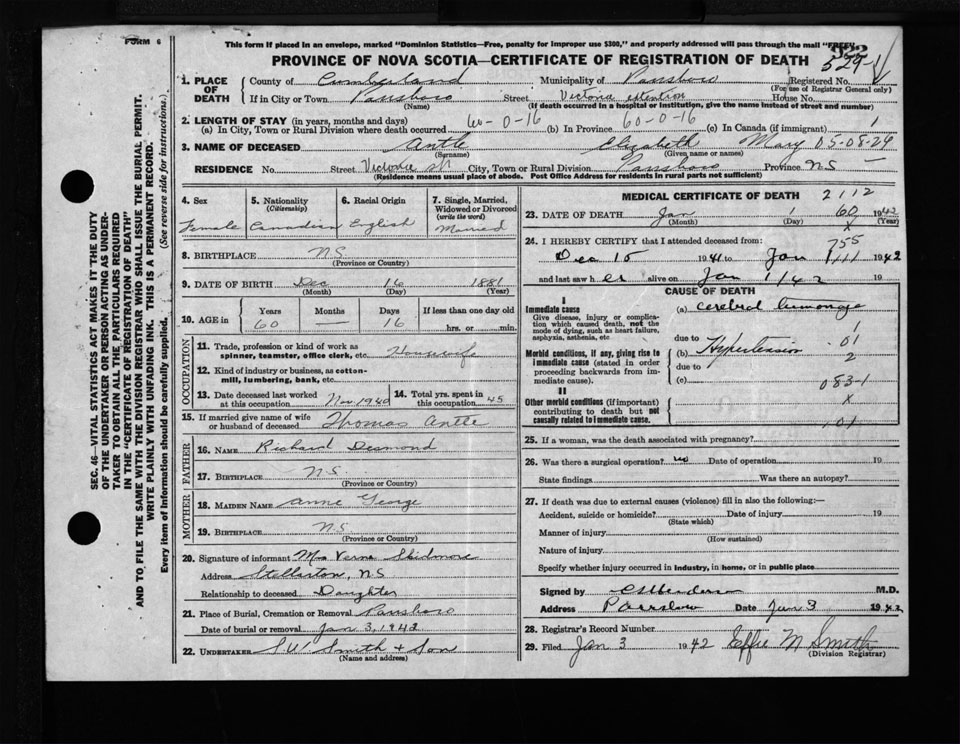 FORM 6
This form if placed in an envelope, marked "Dominion Statistics—Free, penalty for improper use $300," and properly addressed will pass through the mail "FREE"
529
PROVINCE OF NOVA SCOTIA—CERTIFICATE OF REGISTRATION OF DEATH
1. PLACE OF DEATH County of Cumberland Municipality of Parrsboro Registered No.
(For use of Registrar General only)
If in City or Town Parrsboro Street Victoria extention House No.
(Name) (If death occurred in a hospital or institution, give the name instead of street and number)
2. LENGTH OF STAY (in years, months and days)
(a) In City, Town or Rural Division where death occurred 60-0-16 (b) In Province 60-0-16 (c) In Canada (if immigrant) 1
3. NAME OF DECEASED Antle Elizabeth Mary 05-08-29
(Surname) (Given name or names)
RESIDENCE No. Street Victoria St City, Town or Rural Division Parrsboro Province NS —
(Residence means usual place of abode. Post Office Address for residents in rural parts not sufficient)
4. Sex Female
5. Nationality (Citizenship) Canadian
6. Racial Origin English
7. Single, Married, Widowed or Divorced (write the word) Married
8. BIRTHPLACE N.S.
(Province or Country)
9. DATE OF BIRTH Dec 16 1881
(Month) (Day) (Year)
10. AGE in Years Months Days If less than one day old
60 — 16 hrs. or min.
OCCUPATION
11. Trade, profession or kind of work as spinner, teamster, office clerk, etc. Housewife
12. Kind of industry or business, as cotton-mill, lumbering, bank, etc.
13. Date deceased last worked at this occupation Nov. 1940
14. Total yrs. spent in this occupation 45
15. If married give name of wife or husband of deceased Thomas Antle
FATHER
16. NAME Richard Desmond
17. BIRTHPLACE N.S.
(Province or Country)
MOTHER
18. MAIDEN NAME Anne George
19. BIRTHPLACE N.S.
(Province or Country)
20. Signature of informant Mrs Verna Skidmore
Address Stellarton, N.S
Relationship to deceased Daughter
21. Place of Burial, Cremation or Removal Parrsboro
Date of burial or removal Jan 3, 1942
22. UNDERTAKER S W Smith & Son
(Name and address)
MEDICAL CERTIFICATE OF DEATH 2112
23. DATE OF DEATH Jan 1 60 1942
(Month) (Day) (Year)
x
24. I HEREBY CERTIFY that I attended deceased from: 755
Dec 15 1941 to Jan 1942
and last saw her alive on Jan 1/42 19
CAUSE OF DEATH
I
Immediate cause
Give disease, injury or complication which caused death, not the mode of dying, such as heart failure, asphyxia, asthenia, etc
(a) Cerebral
1
due to 01
Morbid conditions, if any, giving rise to immediate cause (stated in order proceeding backwards from immediate cause).
(b) Hypertension
2
due to
(c) 083-1
II
Other morbid conditions (if important) contributing to death but not causally related to immediate cause.
x
101
25. If a woman, was the death associated with pregnancy?
26. Was there a surgical operation? no Date of operation 19
State findings Was there an autopsy?
27. If death was due to external causes (violence) fill in also the following:—
Accident, suicide or homicide? Date of injury 19
(State which)
Manner of injury
(How sustained)
Nature of injury
Specify whether injury occurred in industry, in home, or in public place
Signed by M.D.
Address Parrsboro Date Jan 3 1942
28. Registrar's Record Number
29. Filed Jan 3 1942 Effie M Smith
(Division Registrar)
SEC. 46—VITAL STATISTICS ACT MAKES IT THE DUTY
OF THE UNDERTAKER OR PERSON ACTING AS UNDER-
TAKER TO OBTAIN ALL THE PARTICULARS REQUIRED
IN THE "CERTIFICATE OF REGISTRATION OF DEATH"
AND TO FILE THE SAME WITH THE DIVISION REGISTRAR WHO SHALL ISSUE THE BURIAL PERMIT.
WRITE PLAINLY WITH UNFADING INK. THIS IS A PERMANENT RECORD.
Every item of Information should be carefully supplied. (See reverse side for instructions.)